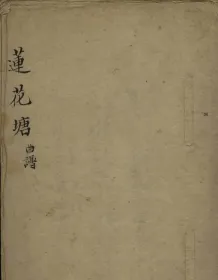 蓮花塘曲譜